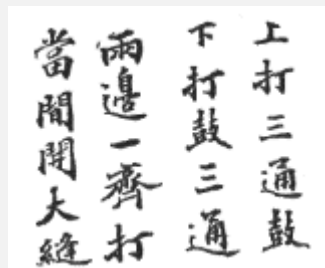 上打三通鼓
下打鼓三通
兩邊一齊打
當間開大縫